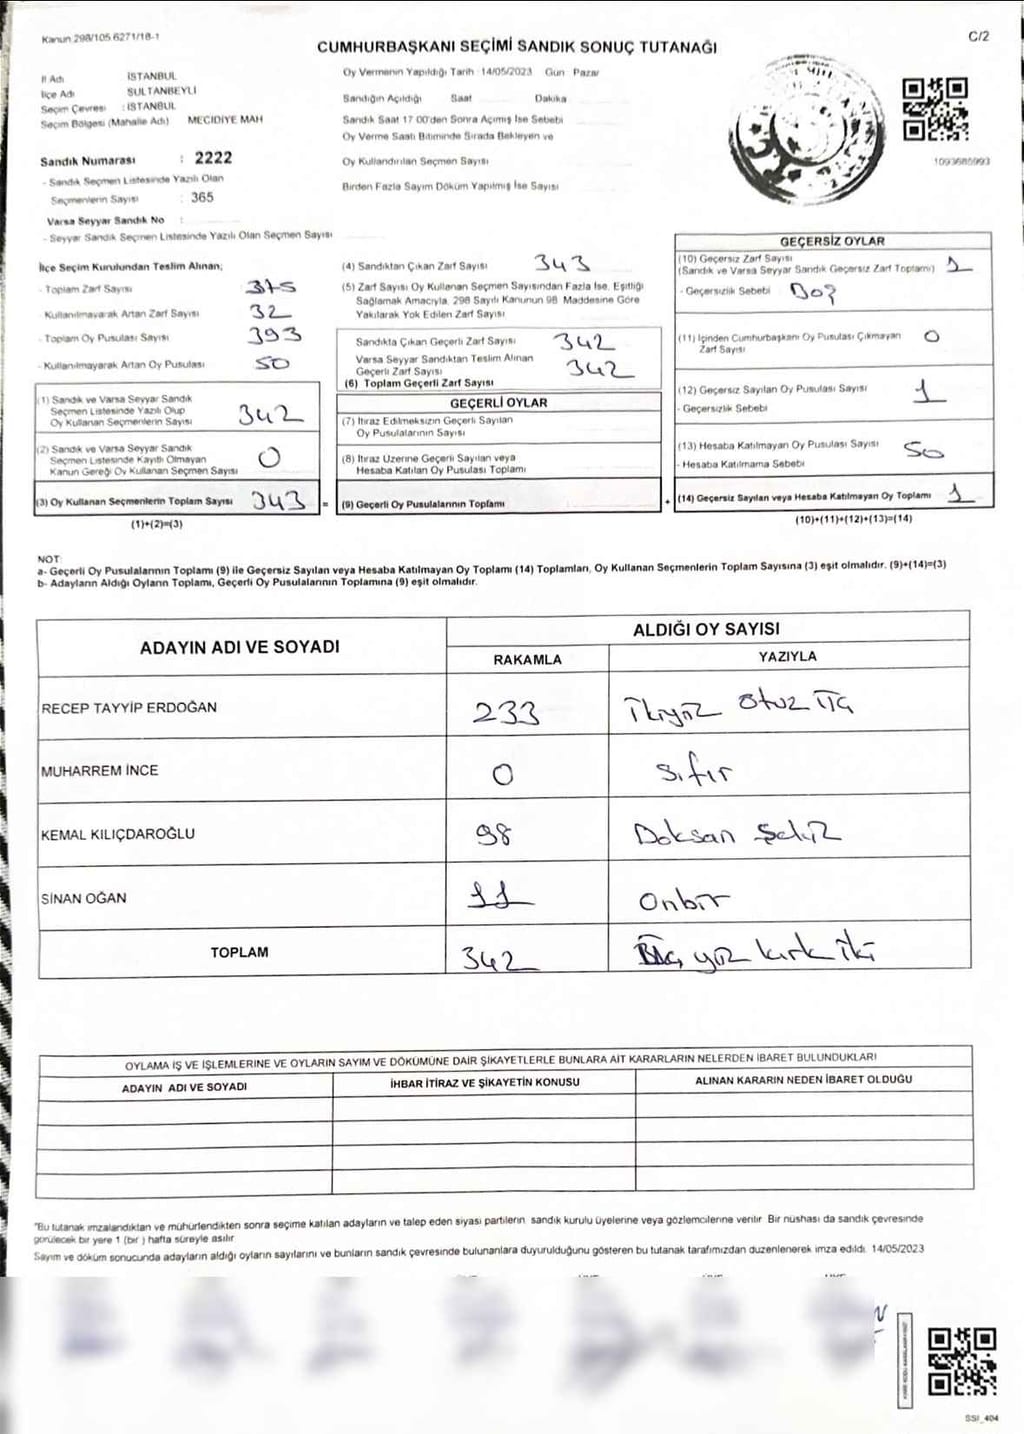 Kanun 298/105 6271/18-1
C/2
CUMHURBAŞKANI SEÇİMİ SANDIK SONUÇ TUTANAĞI
İl Adı İSTANBUL
İlçe Adı SULTANBEYLİ
Seçim Çevresi : İSTANBUL
Seçim Bölgesi (Mahalle Adı) MECİDİYE MAH
Sandık Numarası : 2222
- Sandık Seçmen Listesinde Yazılı Olan
Seçmenlerin Sayısı : 365
Varsa Seyyar Sandık No :
- Seyyar Sandık Seçmen Listesinde Yazılı Olan Seçmen Sayısı
Oy Vermenin Yapıldığı Tarih : 14/05/2023 Gün Pazar
Sandığın Açıldığı Saat Dakika
Sandık Saat 17 00'den Sonra Açımış İse Sebebi
Oy Verme Saati Bitiminde Sırada Bekleyen ve
Oy Kullandırılan Seçmen Sayısı
Birden Fazla Sayım Döküm Yapılmış İse Sayısı
1093685993
İlçe Seçim Kurulundan Teslim Alınan;
- Toplam Zarf Sayısı 375
- Kullanılmayarak Artan Zarf Sayısı 32
- Toplam Oy Pusulası Sayısı 393
- Kullanılmayarak Artan Oy Pusulası 50
(1) Sandık ve Varsa Seyyar Sandık
Seçmen Listesinde Yazılı Olup
Oy Kullanan Seçmenlerin Sayısı 342
(2) Sandık ve Varsa Seyyar Sandık
Seçmen Listesinde Kayıtlı Olmayan
Kanun Gereği Oy Kullanan Seçmen Sayısı 0
(3) Oy Kullanan Seçmenlerin Toplam Sayısı 343 =
(1)+(2)=(3)
(4) Sandıktan Çıkan Zarf Sayısı 343
(5) Zarf Sayısı Oy Kullanan Seçmen Sayısından Fazla İse, Eşitliği
Sağlamak Amacıyla, 298 Sayılı Kanunun 98. Maddesine Göre
Yakılarak Yok Edilen Zarf Sayısı
Sandıkta Çıkan Geçerli Zarf Sayısı 342
Varsa Seyyar Sandıktan Teslim Alınan
Geçerli Zarf Sayısı 342
(6) Toplam Geçerli Zarf Sayısı
GEÇERLİ OYLAR
(7) İtiraz Edilmeksizin Geçerli Sayılan
Oy Pusulalarının Sayısı
(8) İtiraz Üzerine Geçerli Sayılan veya
Hesaba Katılan Oy Pusulası Toplamı
(9) Geçerli Oy Pusulalarının Toplamı +
GEÇERSİZ OYLAR
(10) Geçersiz Zarf Sayısı
(Sandık ve Varsa Seyyar Sandık Geçersiz Zarf Toplamı) 1
- Geçersizlik Sebebi Boş
(11) İçinden Cumhurbaşkanı Oy Pusulası Çıkmayan
Zarf Sayısı 0
(12) Geçersiz Sayılan Oy Pusulası Sayısı 1
- Geçersizlik Sebebi
(13) Hesaba Katılmayan Oy Pusulası Sayısı 50
- Hesaba Katılmama Sebebi
(14) Geçersiz Sayılan veya Hesaba Katılmayan Oy Toplamı 1
(10)+(11)+(12)+(13)=(14)
NOT:
a- Geçerli Oy Pusulalarının Toplamı (9) ile Geçersiz Sayılan veya Hesaba Katılmayan Oy Toplamı (14) Toplamları, Oy Kullanan Seçmenlerin Toplam Sayısına (3) eşit olmalıdır. (9)+(14)=(3)
b- Adayların Aldığı Oyların Toplamı, Geçerli Oy Pusulalarının Toplamına (9) eşit olmalıdır.
ADAYIN ADI VE SOYADI ALDIĞI OY SAYISI
RAKAMLA YAZIYLA
RECEP TAYYİP ERDOĞAN 233 İkiyüz otuz üç
MUHARREM İNCE 0 Sıfır
KEMAL KILIÇDAROĞLU 98 Doksan Sekiz
SİNAN OĞAN 11 Onbir
TOPLAM 342 Üç yüz kırk iki
OYLAMA İŞ VE İŞLEMLERİNE VE OYLARIN SAYIM VE DÖKÜMÜNE DAİR ŞİKAYETLERLE BUNLARA AİT KARARLARIN NELERDEN İBARET BULUNDUKLARI
ADAYIN ADI VE SOYADI İHBAR İTİRAZ VE ŞİKAYETİN KONUSU ALINAN KARARIN NEDEN İBARET OLDUĞU
"Bu tutanak imzalandıktan ve mühürlendikten sonra seçime katılan adayların ve talep eden siyasi partilerin sandık kurulu üyelerine veya gözlemcilerine verilir Bir nüshası da sandık çevresinde
görülecek bir yere 1 (bir ) hafta süreyle asılır
Sayım ve döküm sonucunda adayların aldığı oyların sayılarını ve bunların sandık çevresinde bulunanlara duyurulduğunu gösteren bu tutanak tarafımızdan düzenlenerek imza edildi. 14/05/2023
SSI_404